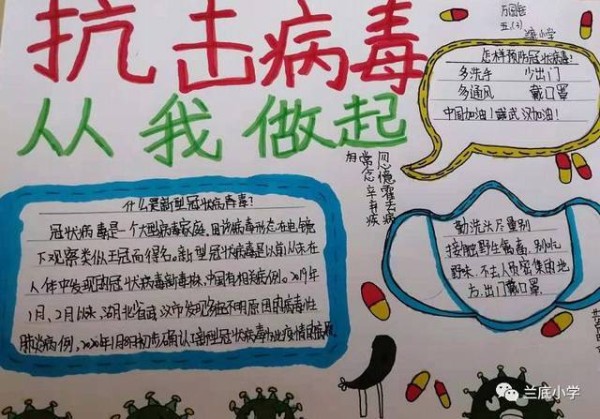 抗击病毒
从我做起
五.(3)
小学
怎样预防冠状病毒!
多洗手 少出门
多通风 戴口罩
中国加油!武汉加油!
什么是新型冠状病毒!
冠状病毒是一个大型病毒家庭,因该病毒形态在电镜
下观察类似王冠而得名。新型冠状病毒是以前从未在
人体中发现的冠状病毒新毒株,中国有相关病例。2019年
1月、2月以来,湖北省武汉市发现多起不明原因的病毒性
肺炎病例,2020年1月8日初步确认了新型冠状病毒为此疫情的病原
常念
霍去病
辛弃疾
勤洗
接触野生禽毒,别吃
野味,不去人员密集团地
方,出门戴口罩
兰底小学